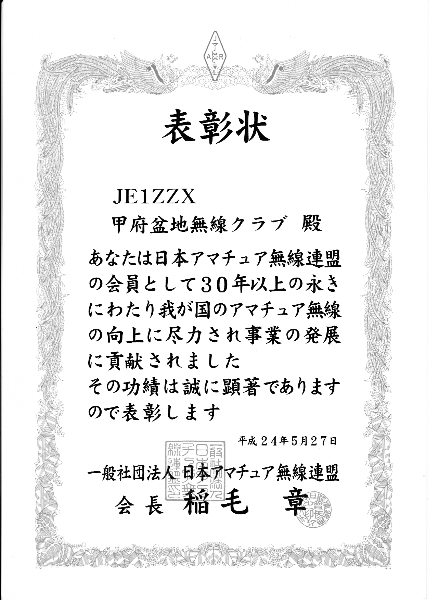 表彰状
JE1ZZX
甲府盆地無線クラブ 殿
あなたは日本アマチュア無線連盟
の会員として30年以上の永き
にわたり我が国のアマチュア無線
の向上に尽力され事業の発展
に貢献されました
その功績は誠に顕著であります
ので表彰します
平成24年5月27日
一般社団法人 日本アマチュア無線連盟
会長 稲毛 章